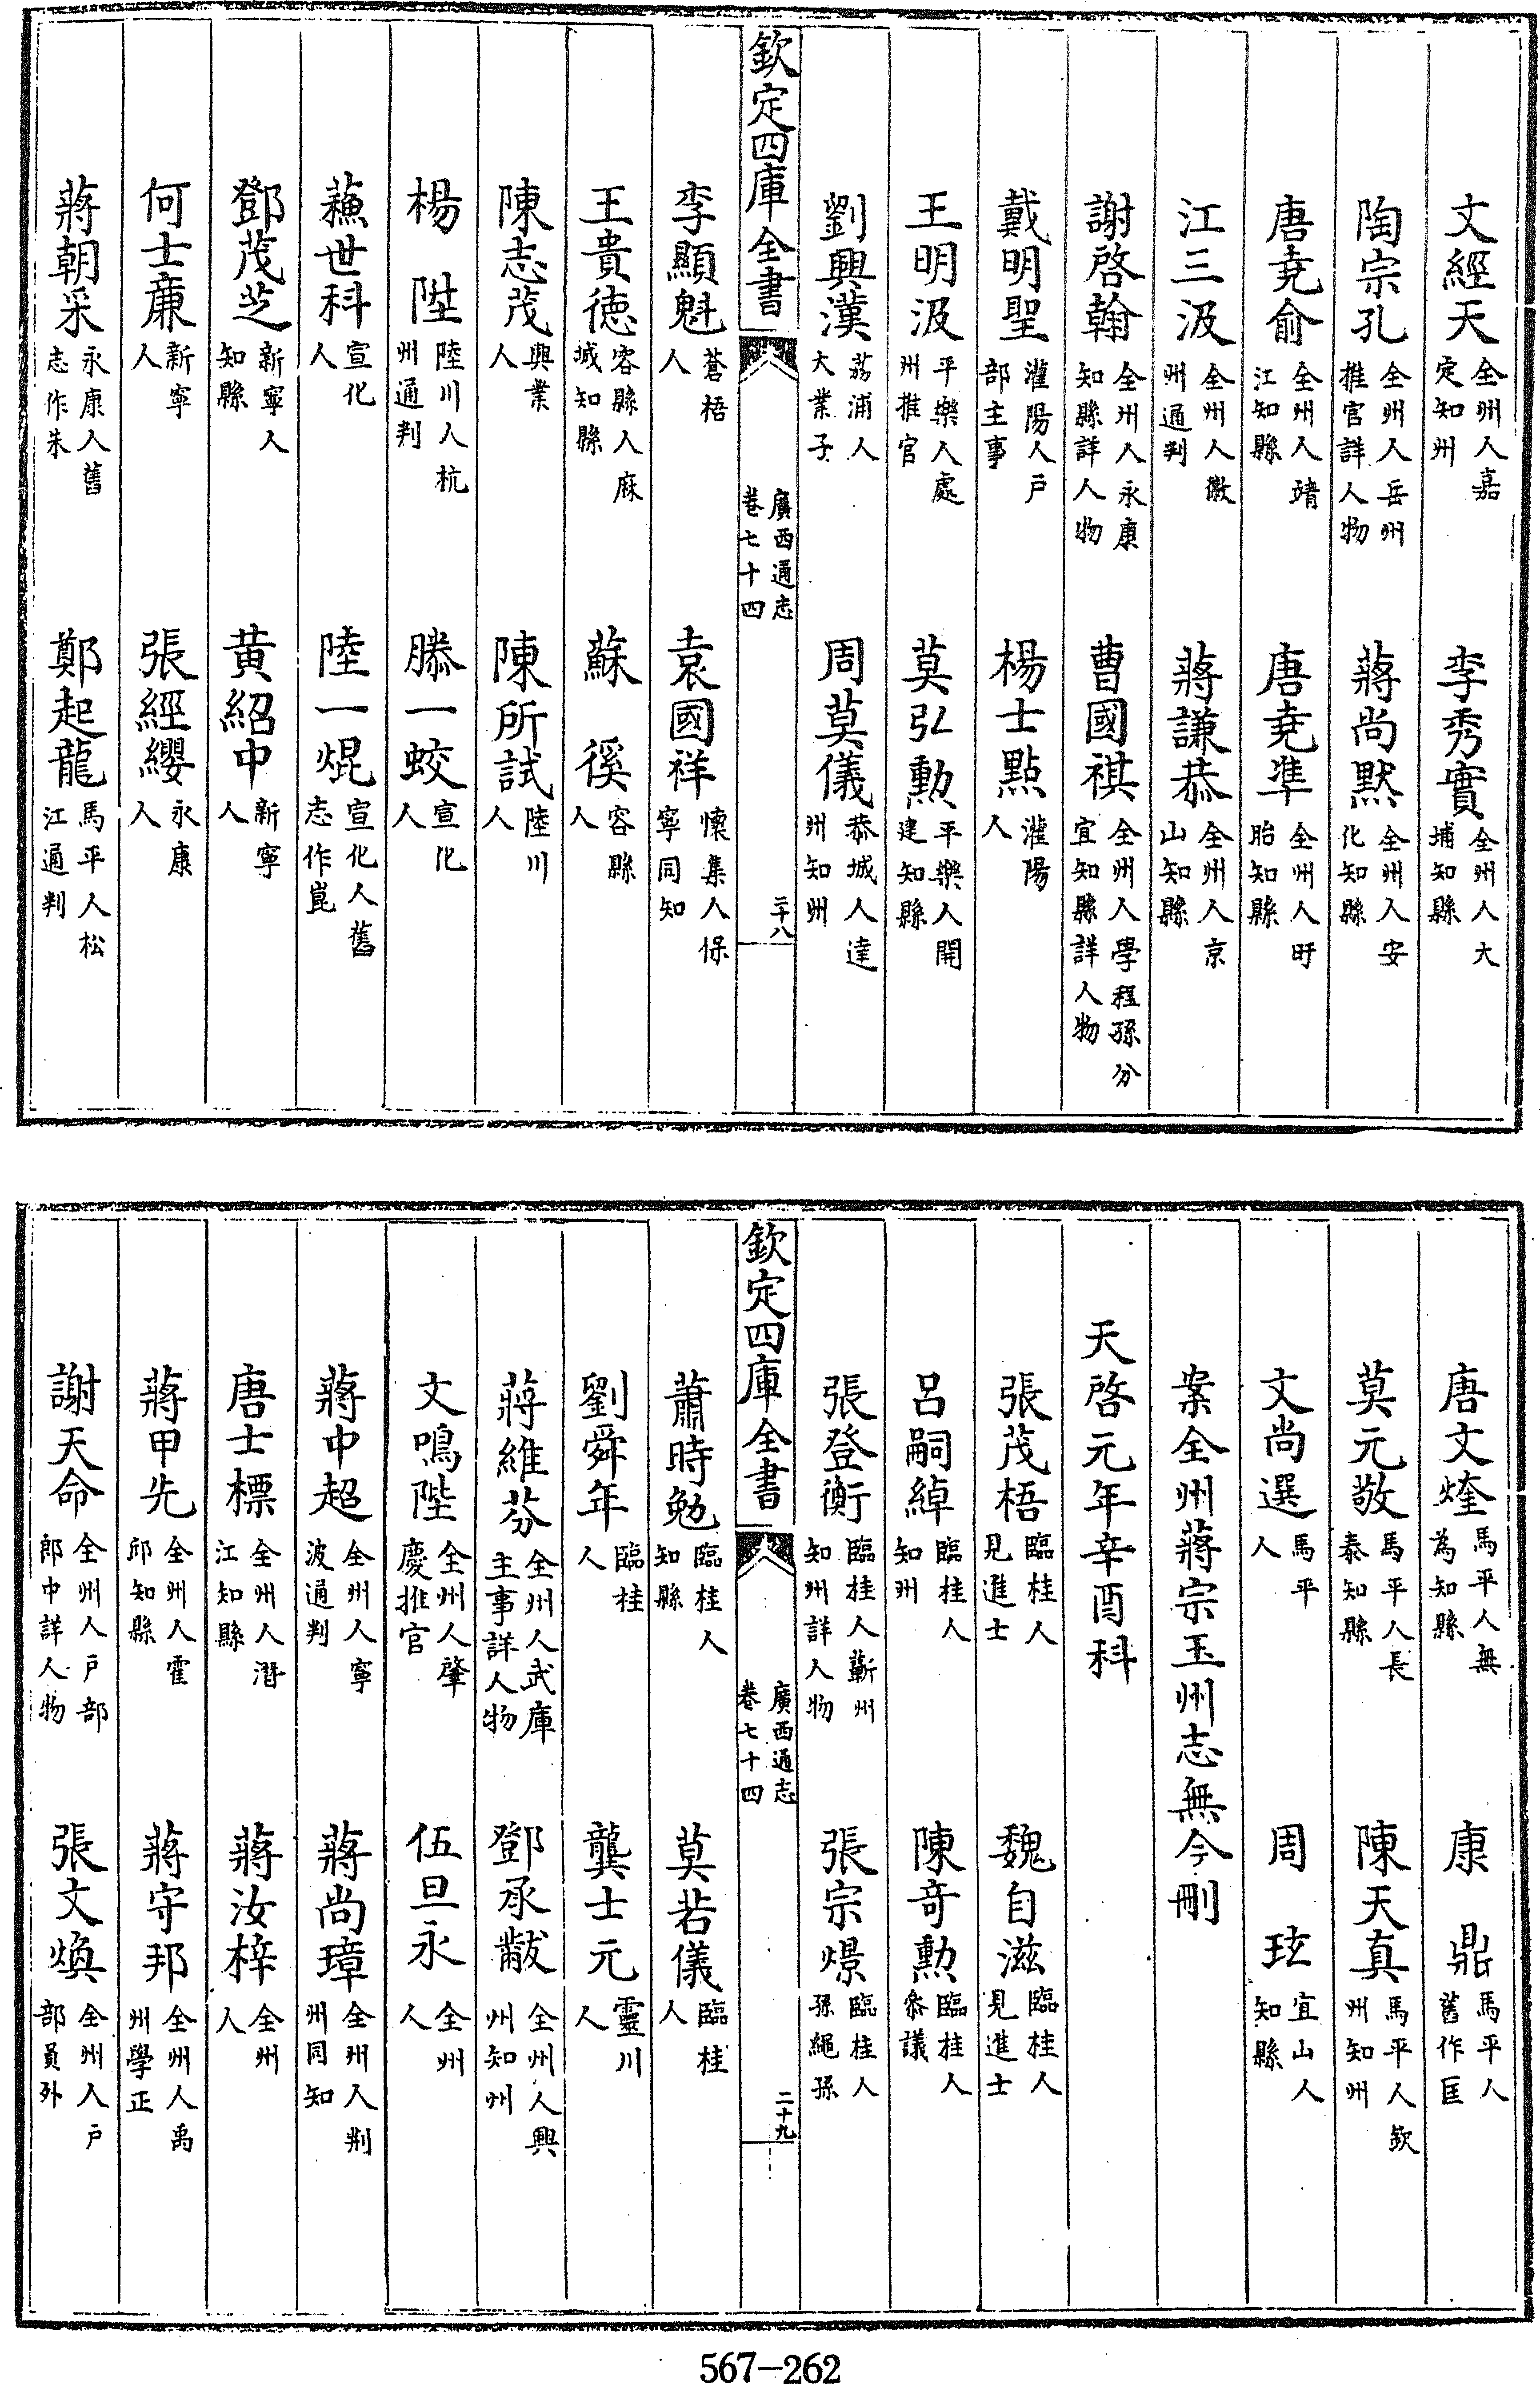 文經天全州人嘉定知州　李秀實全州人大埔知縣
陶宗孔全州人岳州推官詳人物　蔣尚默全州人安化知縣
唐堯俞全州人靖江知縣　唐堯凖全州人盱眙知縣
江三汲全州人徽州通判　蔣謙恭全州人京山知縣
謝啓翰全州人永康知縣詳人物　曹國祺全州人學程孫分宜知縣詳人物
戴明聖灌陽人戶部主事　楊士點灌陽人
王明汲平樂人處州推官　莫弘勲平樂人開建知縣
劉興漢荔浦人大業子　周莫儀恭城人達州知州
欽定四庫全書　廣西通志卷七十四　二十八
李顯魁蒼梧人　袁國祥懷集人保寧同知
王貴德容縣人麻城知縣　蘇　徯容縣人
陳志茂興業人　陳所試陸川人
楊　陞陸川人杭州通判　滕一蛟宣化人
蘓世科宣化人　陸一焜宣化人舊志作崑
鄧茂芝新寧人知縣　黄紹中新寧人
何士亷新寧人　張經纓永康人
蔣朝采永康人舊志作朱　鄭起龍馬平人松江通判
唐文煃馬平人無為知縣　康　鼎馬平人舊作匡
莫元敬馬平人長泰知縣　陳天真馬平人欽州知州
文尚選馬平人　周　玹宜山人知縣
案全州蔣宗玉州志無今刪
天啓元年辛酉科
張茂梧臨桂人見進士　魏自滋臨桂人見進士
呂嗣綽臨桂人知州　陳奇勲臨桂人叅議
張登衡臨桂人蘄州知州詳人物　張宗燝臨桂人孫繩孫
欽定四庫全書　廣西通志卷七十四　二十九
蕭時勉臨桂人知縣　莫若儀臨桂人
劉舜年臨桂人　龔士元靈川人
蔣維芬全州人武庫主事詳人物　鄧承黻全州人興州知州
文鳴陛全州人肇慶推官　伍旦永全州人
蔣中超全州人寧波通判　蔣尚璋全州人荆州同知
唐士標全州人潛江知縣　蔣汝梓全州人
蔣甲先全州人霍邱知縣　蔣守邦全州人禹州學正
謝天命全州人戶部郎中詳人物　張文煥全州人戶部員外
567-262